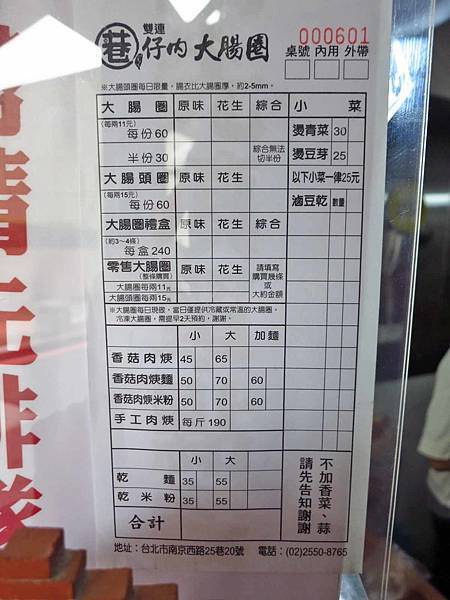 雙連
巷仔內大腸圈
000601
桌號 內用 外帶
※大腸頭圈每日限量,腸衣比大腸圈厚,約2-5mm。
大腸圈 原味 花生 綜合 小菜
(每兩11元)
每份60
燙青菜 30
半份30 綜合無法切半份 燙豆芽 25
大腸頭圈 原味 花生 以下小菜一律25元
(每兩15元)
每份60
滷豆乾 數量
大腸圈禮盒 原味 花生 綜合
(約3~4條)
每盒240
零售大腸圈 原味 花生 請填寫購買幾條或大約金額
(整條購買)
大腸圈每兩11元
大腸頭圈每兩15元
※大腸圈每日現做,當日僅提供冷藏或常溫的大腸圈。
冷凍大腸圈,需提早2天預約,謝謝。
小 大 加麵
香菇肉焿 45 65
香菇肉焿麵 50 70 60
香菇肉焿米粉 50 70 60
手工肉焿 每斤190
小 大
乾麵 35 55
乾米粉 35 55
合計
不加香菜、蒜
請先告知謝謝
地址:台北市南京西路25巷20號 電話:(02)2550-8765